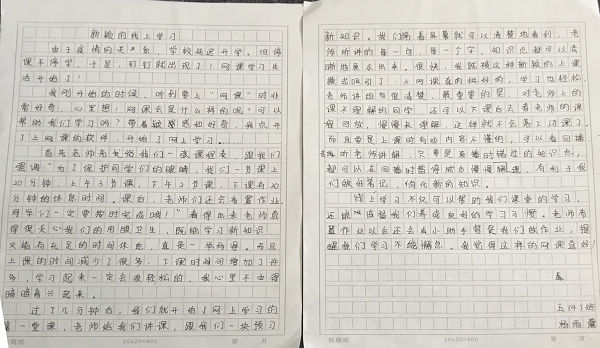 新颖的线上学习
由于疫情的关系，学校延迟开学。但停
课不停学，于是，钉钉就出现了！网课学习生
活开始了！
我刚开始的时候，听到要上“网课”时非
常好奇，心里想：网课会是什么样的呢？可以
帮助我们学习吗？带着疑惑和好奇，我点开
了上网课的软件，开始了网上学习……
首先老师先发给我们一张课程表，跟我们
强调“为了保护同学们的眼睛，我们一节课上
20分钟，上午3节课，下午2节课，下课有20
分钟的休息时间。课后，老师们还会布置作业
同学们一定要按时完成哦！”看得出来老师真
得很关心我们的用眼卫生，既能学习新知识
又能有充足的时间休息，真是一举两得。而且
上课的时间减少了很多，下课时间增加了许
多，学习起来一定会很轻松的，我心里不由得
暗暗高兴起来。
过了几分钟后，我们就开始了网上学习的
第一堂课，老师给我们讲课，跟我们一块预习
20×20=400
新知识。我们隔着屏幕就可以清楚地看到，老
师所讲的每一句，每一个字，知识点都可以清
晰地展示出来。很快，我就被这种新颖的上课
模式吸引了，上网课真的挺好的，学习也轻松，
老师讲的也很清楚，最重要的是，对老师上的
课不理解的同学，还可以下课自去看老师的课
程回放，慢慢来理解，这样就不会落下功课了。
而且要是上课时有些内容不懂的，可以看回播
再听老师讲解，只要是直播时错过的知识点，
都可以在回播时暂停或者慢慢观看，有利于我
们做好笔记，优化新的知识。
线上学习不仅可以帮助我们课堂的学习，
还能够监督我们养成良好的学习习惯。老师布
置作业以后还会有小助手督促我们做作业，提
醒我们学习不能懈怠。我觉得这样的网课真好！
五(4)班
杨雨
20×20=400